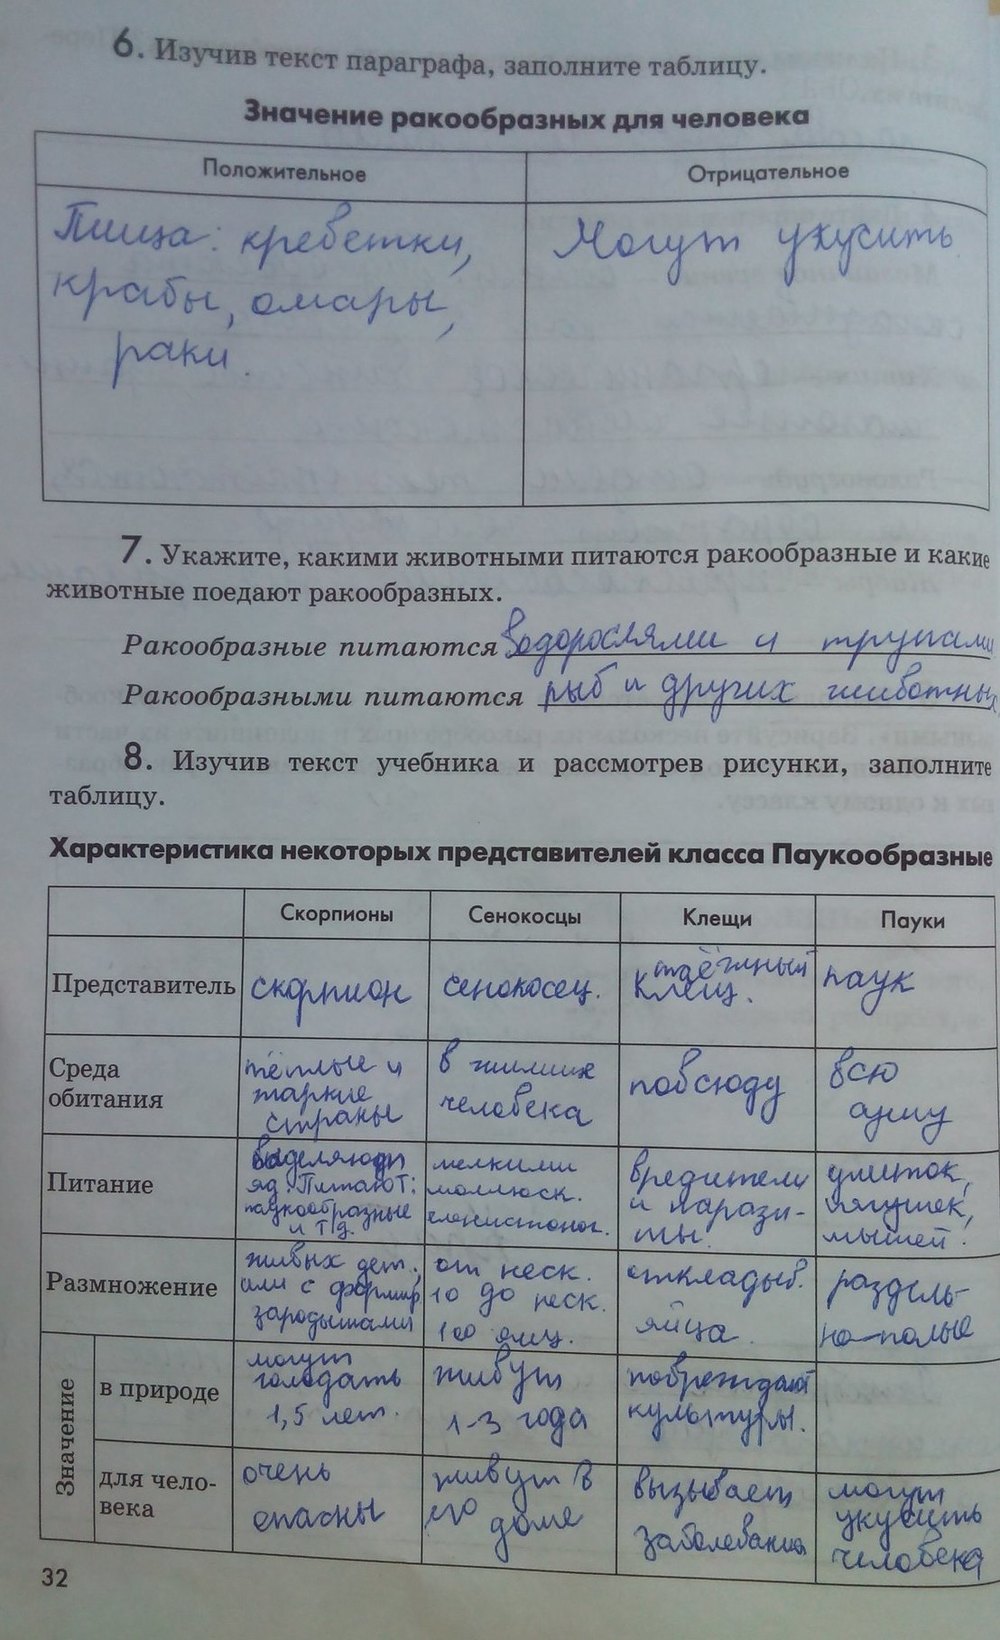 6. Изучив текст параграфа, заполните таблицу.
Значение ракообразных для человека
Положительное
Отрицательное
Пища: креветки,
крабы, омары,
раки.
Могут укусить
7. Укажите, какими животными питаются ракообразные и какие
животные поедают ракообразных.
Ракообразные питаются водорослями и трупами
Ракообразными питаются рыб и других животных
8. Изучив текст учебника и рассмотрев рисунки, заполните
таблицу.
Характеристика некоторых представителей класса Паукообразные
Скорпионы
Сенокосцы
Клещи
Пауки
Представитель
скорпион
сенокосец.
таёжный
клещ.
паук
Среда
обитания
тёплые и
жаркие
страны
в жилище
человека
повсюду
всю
сушу
Питание
выделяют
яд. Питают:
паукообразные
и т.д.
мелкими
моллюск.
членистоног.
вредители
и парази-
ты.
улиток,
лягушек,
мышей.
Размножение
живых дет.,
или с формир.
зародышами
от неск.
10 до неск.
100 яиц.
откладыв.
яйца.
раздель-
но-полые
Значение
в природе
могут
голодать
1,5 лет.
живут
1-3 года
повреждают
культуры.
для чело-
века
очень
опасны
живут в
его
доме
вызывает
заболевания
могут
укусить
человека
32